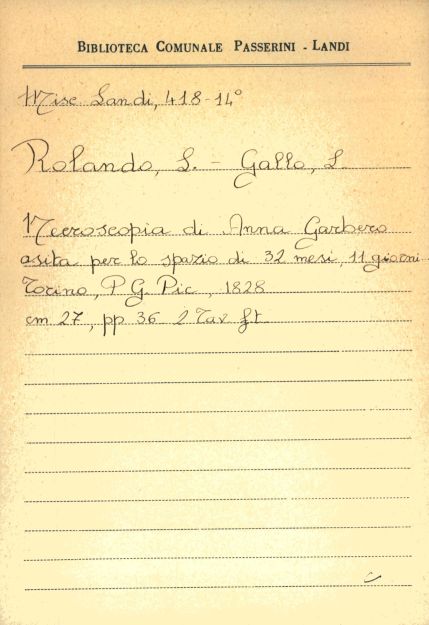 BIBLIOTECA COMUNALE PASSERINI - LANDI
Misc. Landi, 418-14°
Rolando, L. - Gallo, L.
Necroscopia di Anna Garbero
asita per lo spazio di 32 mesi, 11 giorni
Torino, P. G. Pic, 1828
cm 27, pp 36 2 Tav ft.